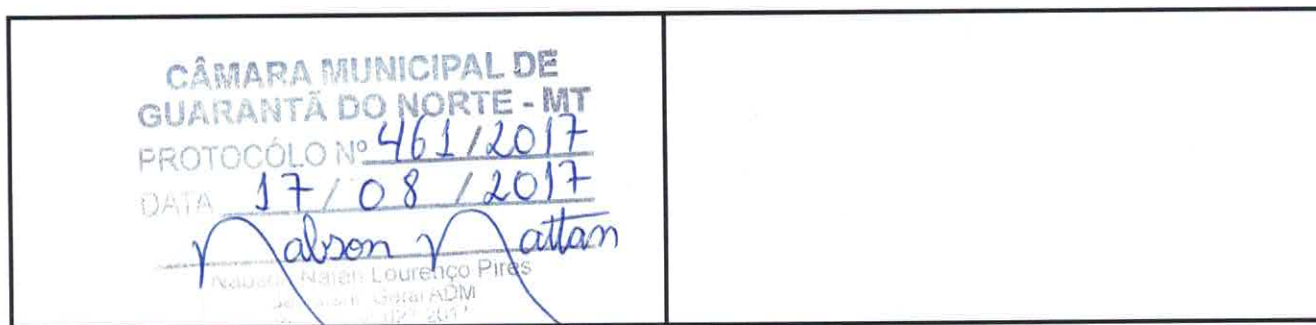 CÂMARA MUNICIPAL DE
GUARANTÃ DO NORTE - MT
PROTOCÓLO Nº 461/2017
DATA 17/08/2017
Nabson Nattan
Lourenço Pires
Geral ADM